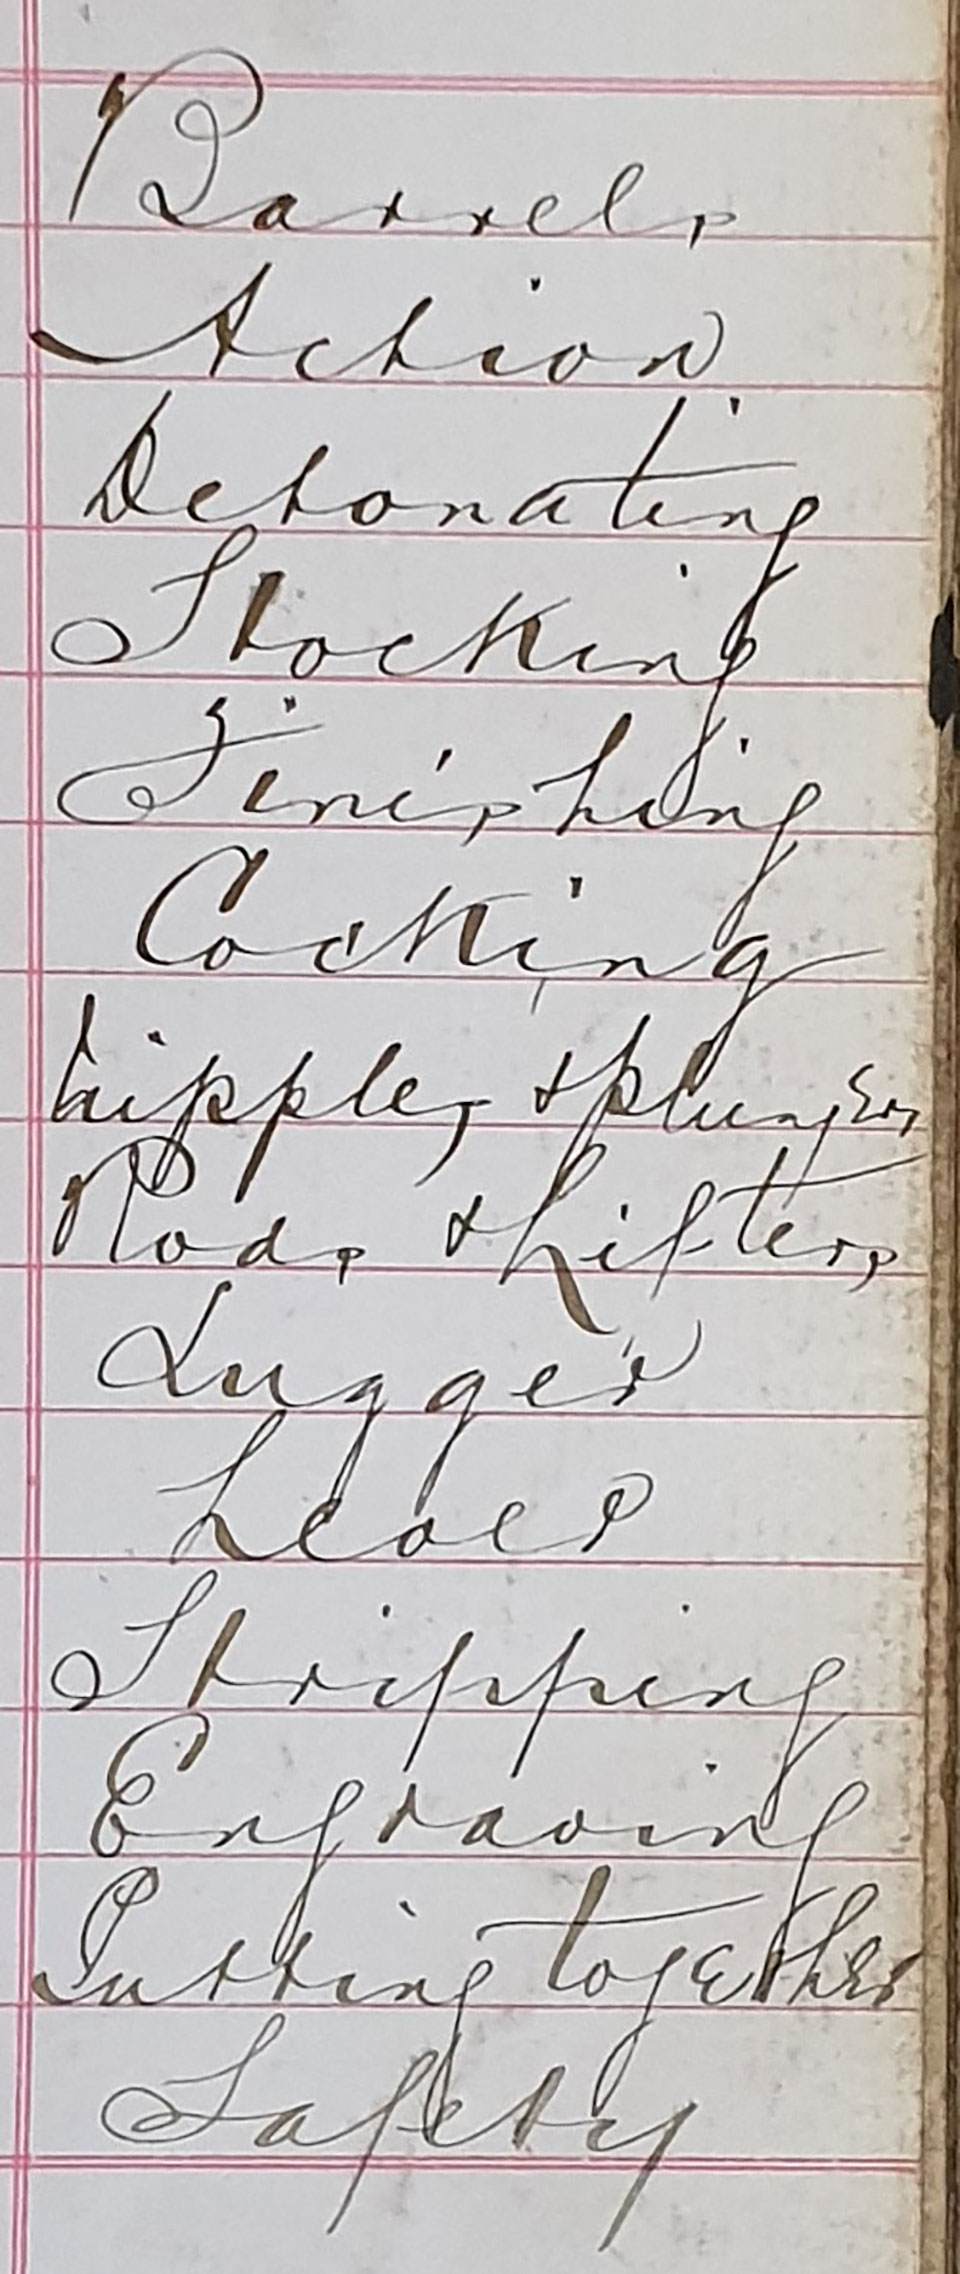 Barrels
Action
Detonating
Stocking
Finishing
Cocking
Nipples & plungers
Rods & Lifters
Lugger
Lever
Stripping
Engraving
Putting together
Safety